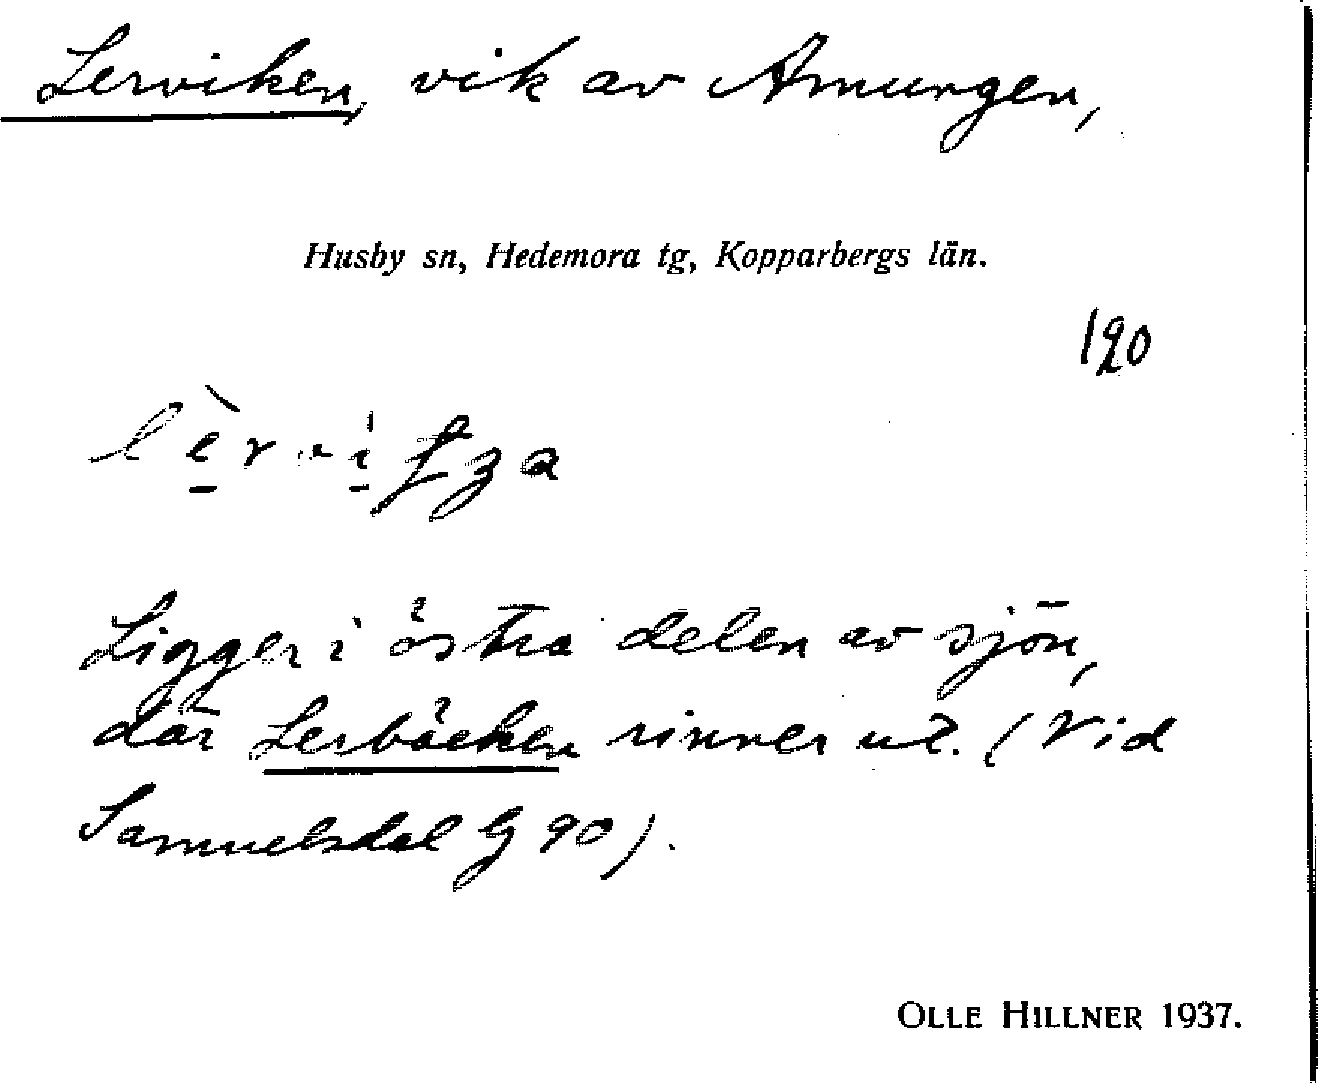 Lerviken, vik av Amungen,
Husby sn, Hedemora tg, Kopparbergs län.
120
Ligger i östra delen av sjön,
där Lerbäcken rinner ut. (Vid
Samuelsdal Lg 90).
OLLE HILLNER 1937.